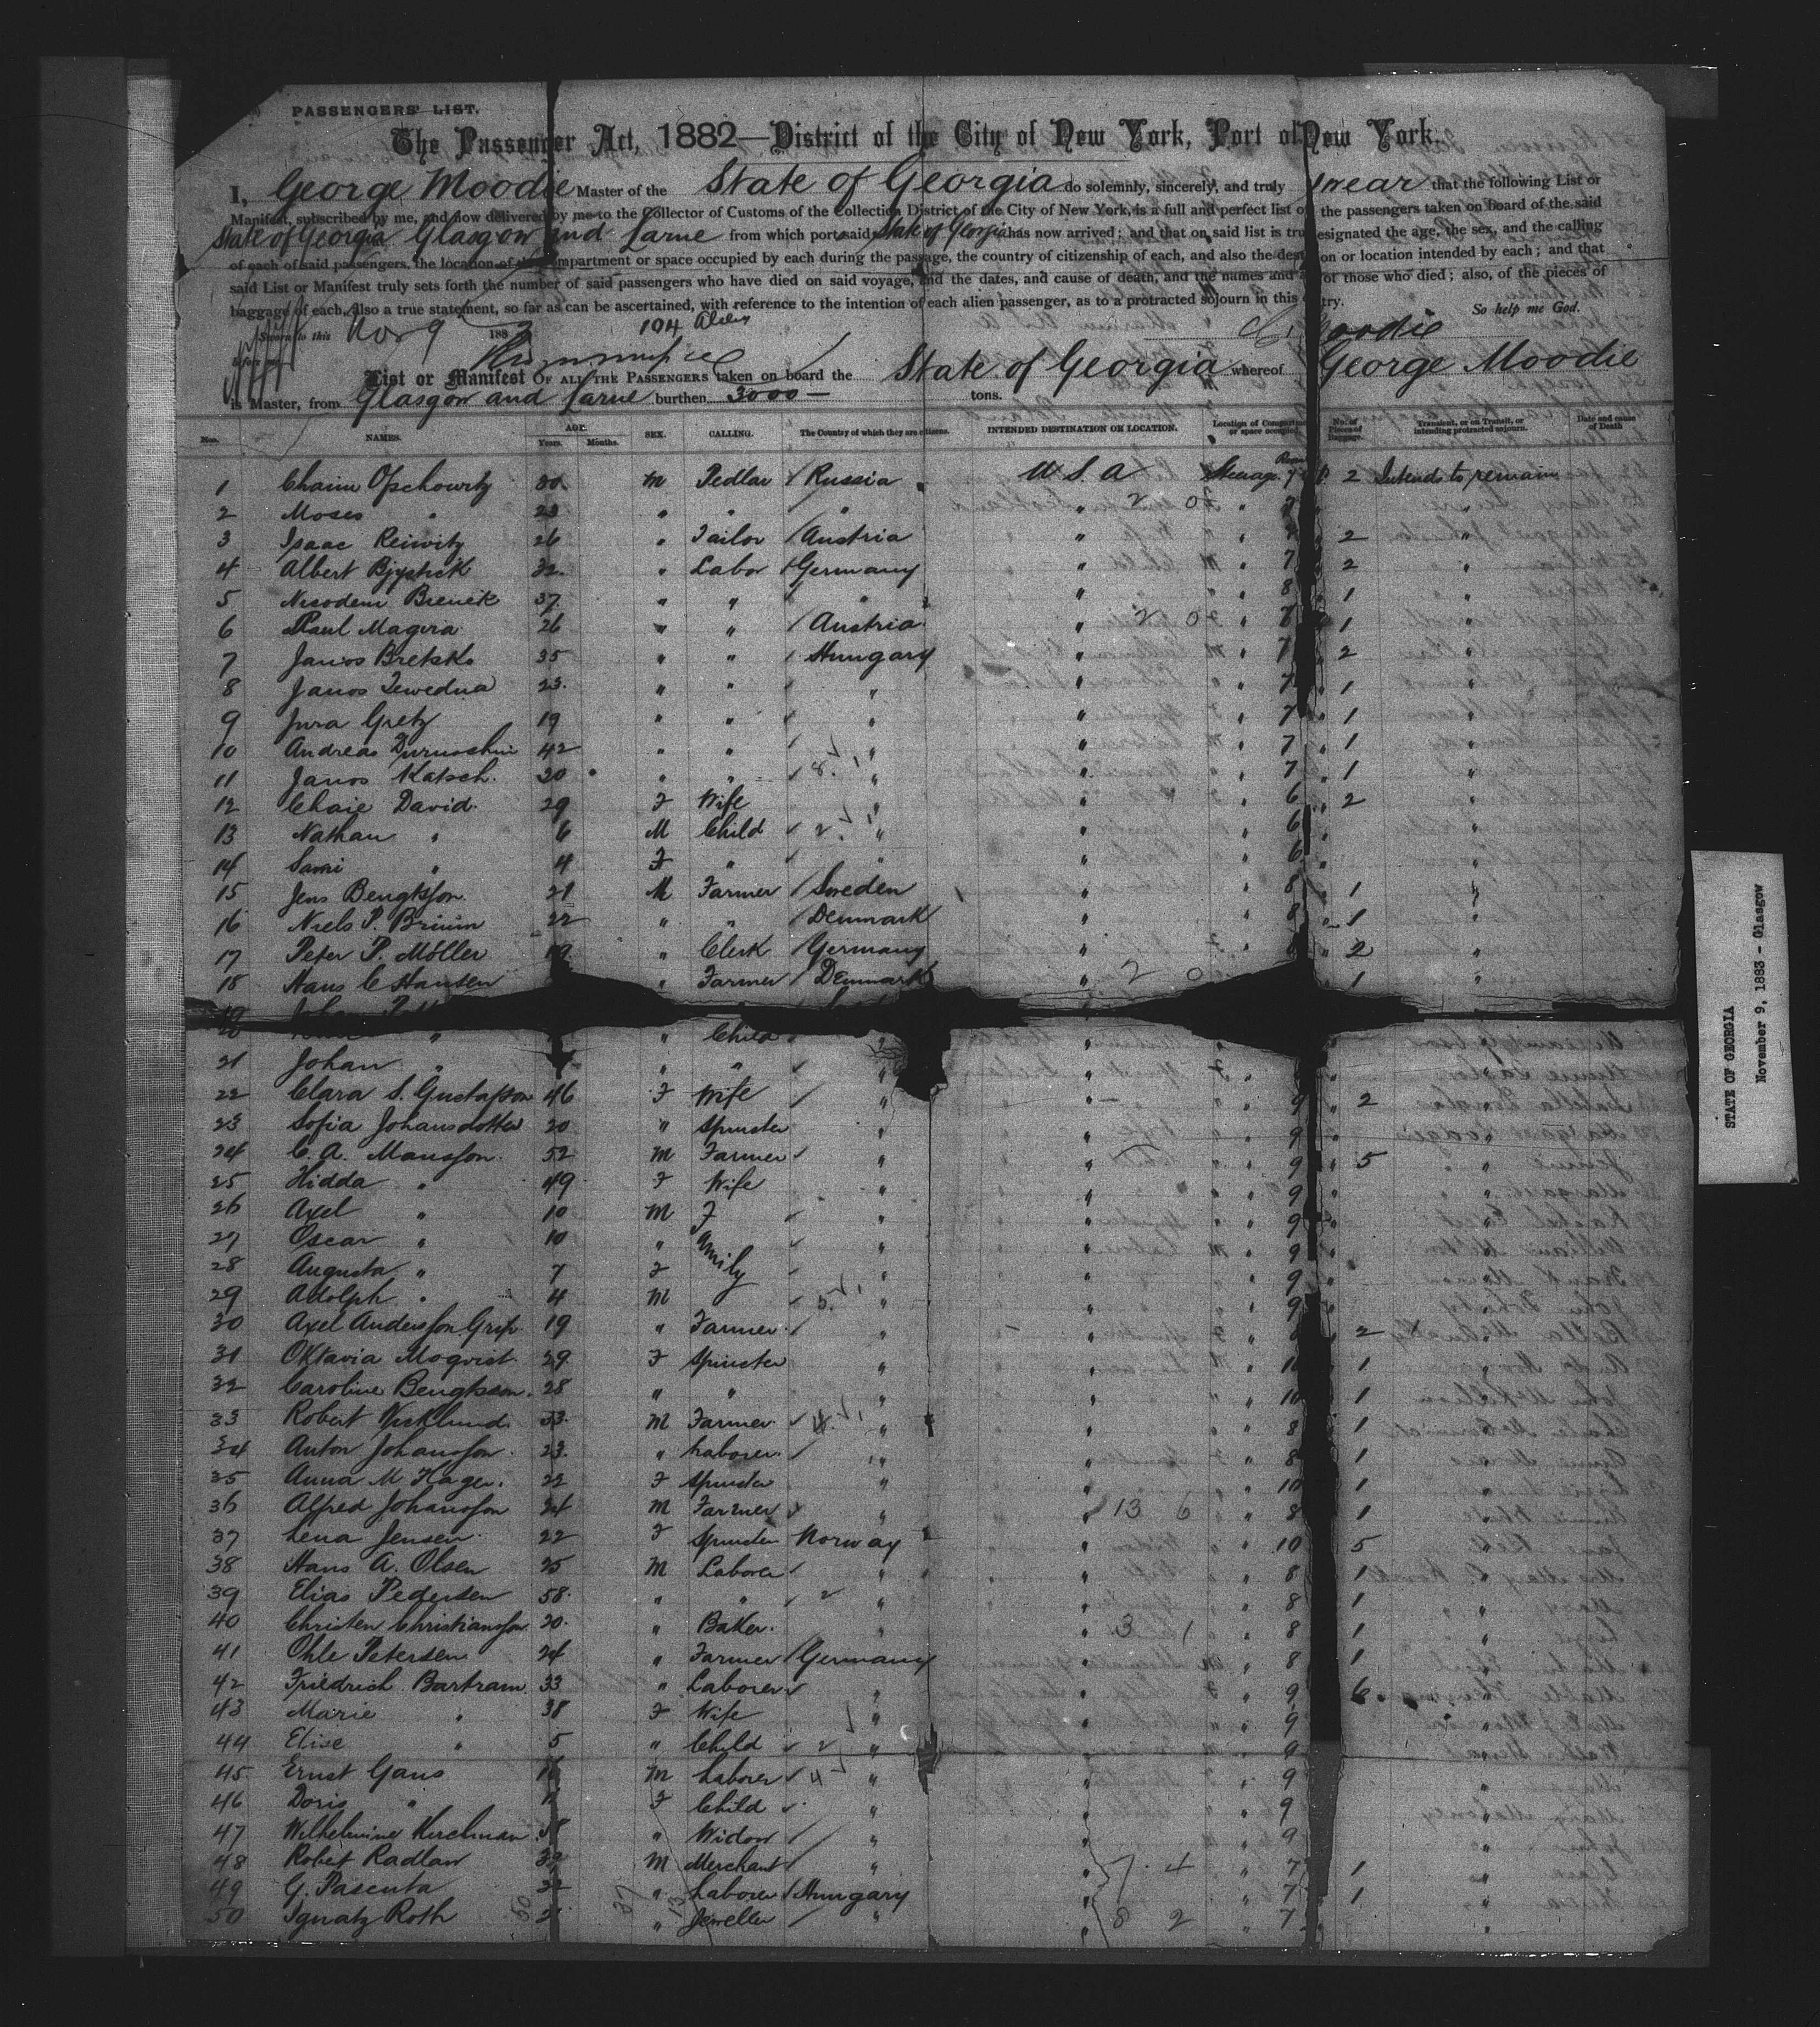 PASSENGERS' LIST.
The Passenger Act, 1882—District of the City of New York, Port of New York.
I, George Moodie Master of the State of Georgia do solemnly, sincerely, and truly swear that the following List or
Manifest, subscribed by me, and now delivered by me to the Collector of Customs of the Collection District of the City of New York, is a full and perfect list of the passengers taken on board of the said
State of Georgia Glasgow and Larne from which port said State of Georgia has now arrived; and that on said list is tru esignated the age, the sex, and the calling
of each of said passengers, the location of the compartment or space occupied by each during the passage, the country of citizenship of each, and also the dest on or location intended by each; and that
said List or Manifest truly sets forth the number of said passengers who have died on said voyage, and the dates, and cause of death, and the names and a of those who died; also, of the pieces of
baggage of each, also a true statement, so far as can be ascertained, with reference to the intention of each alien passenger, as to a protracted sojourn in this try.
So help me God.
Sworn to this Nov 9 1883 104 Moodie
before me
List or Manifest OF ALL THE PASSENGERS taken on board the State of Georgia whereof George Moodie
is Master, from Glasgow and Larne burthen 3000 — tons.
Nos. NAMES. AGE. Years. Months. SEX. CALLING. The Country of which they are citizens. INTENDED DESTINATION OR LOCATION. Location of Compartment or space occupied. No. of Pieces of Baggage. Transient, or on Transit, or intending protracted sojourn. Date and cause of Death
1 Chaim Opschowitz 30 M Pedlar Russia U S A Steerage 7 2 Intends to remain
2 Moses " 23 " " " " 2 0 " 7 " "
3 Isaac Reiwitz 26 " Tailor Austria " " 7 " 2 "
4 Albert Bjystick 32 " Labor Germany " " 7 " 2 "
5 Nicodem Bienek 37 " " " " " 8 " 1 "
6 Paul Magera 26 " " Austria " 2 0 " 7 " 1 "
7 Janos Bretsko 35 " " Hungary " " 7 " 2 "
8 Janos Tewedna 23 " " " " " 7 " 1 "
9 Jura Gretz 19 " " " " " 7 " 1 "
10 Andreas 42 " " " " " 7 " 1 "
11 Janos Katsch 20 " " 8 " " " 7 " 1 "
12 Chaie David 29 F Wife " " " 6 " 2 "
13 Nathan " 6 M Child 2 " " " 6 " "
14 Sami " 4 F " " " " 6 " "
15 Jens Bengtsson 21 M Farmer Sweden " " 8 " 1 "
16 Niels P. Bruun 22 " " Denmark " " 8 " 1 "
17 Peter P. Möller 19 " Clerk Germany " " 8 " 2 "
18 Hans C Hansen " Farmer Denmark " 2 0 1 "
19 Johan
20 " " Child " "
21 Johan " " " " "
22 Clara S. Gustafson 46 F Wife " " " 9 " 2 "
23 Sofia Johansdotter 20 " Spinster " " " 9 " "
24 C. A. Mansson 52 M Farmer " " " 9 " 5 "
25 Hidda " 49 F Wife " " " 9 " "
26 Axel " 10 M Family " " " 9 " "
27 Oscar " 10 " " " " 9 " "
28 Augusta " 7 F " " " 9 " "
29 Adolph " 4 M 5 " " " 9 " "
30 Axel Andersson Grip 19 " Farmer " " " 8 " 2 "
31 Oktavia Moqvist 29 F Spinster " " " 10 " 1 "
32 Caroline Bengtsson 28 " " " " " 10 1 "
33 Robert Wicklund 33 M Farmer 4 " " " 8 1 "
34 Anton Johansson 23 " Laborer " " " 8 1 "
35 Anna M Hager 22 F Spinster " " " 10 1 "
36 Alfred Johansson 24 M Farmer " " 13 6 " 8 1 "
37 Lena Jensen 22 F Spinster Norway " " 10 5 "
38 Hans A. Olsen 25 M Laborer " " " 8 1 "
39 Elias Pedersen 58 " " 2 " " " 8 1 "
40 Christen Christiansson 20 " Baker " " 3 1 " 8 1 "
41 Ohle Petersen 24 " Farmer Germany " " 8 1 "
42 Friedrich Bartram 33 " Laborer " " " 9 6 "
43 Marie " 38 F Wife " " " 9 "
44 Elise " 5 " Child 2 " " " 9 "
45 Ernst Gans 16 M Laborer 4 " " " 9 "
46 Doris " F Child " " " 9 "
47 Wilhelmine Kirchman " Widow " " " 9 "
48 Robet Radlaw M Merchant " " 7 4 " 7 1 "
49 G. Pascuta 22 " Laborer Hungary " " 7 1 "
50 Ignatz Roth " Jeweller " " 8 2 " 7 "
50 37 13
STATE OF GEORGIA
November 9, 1883 - Glasgow